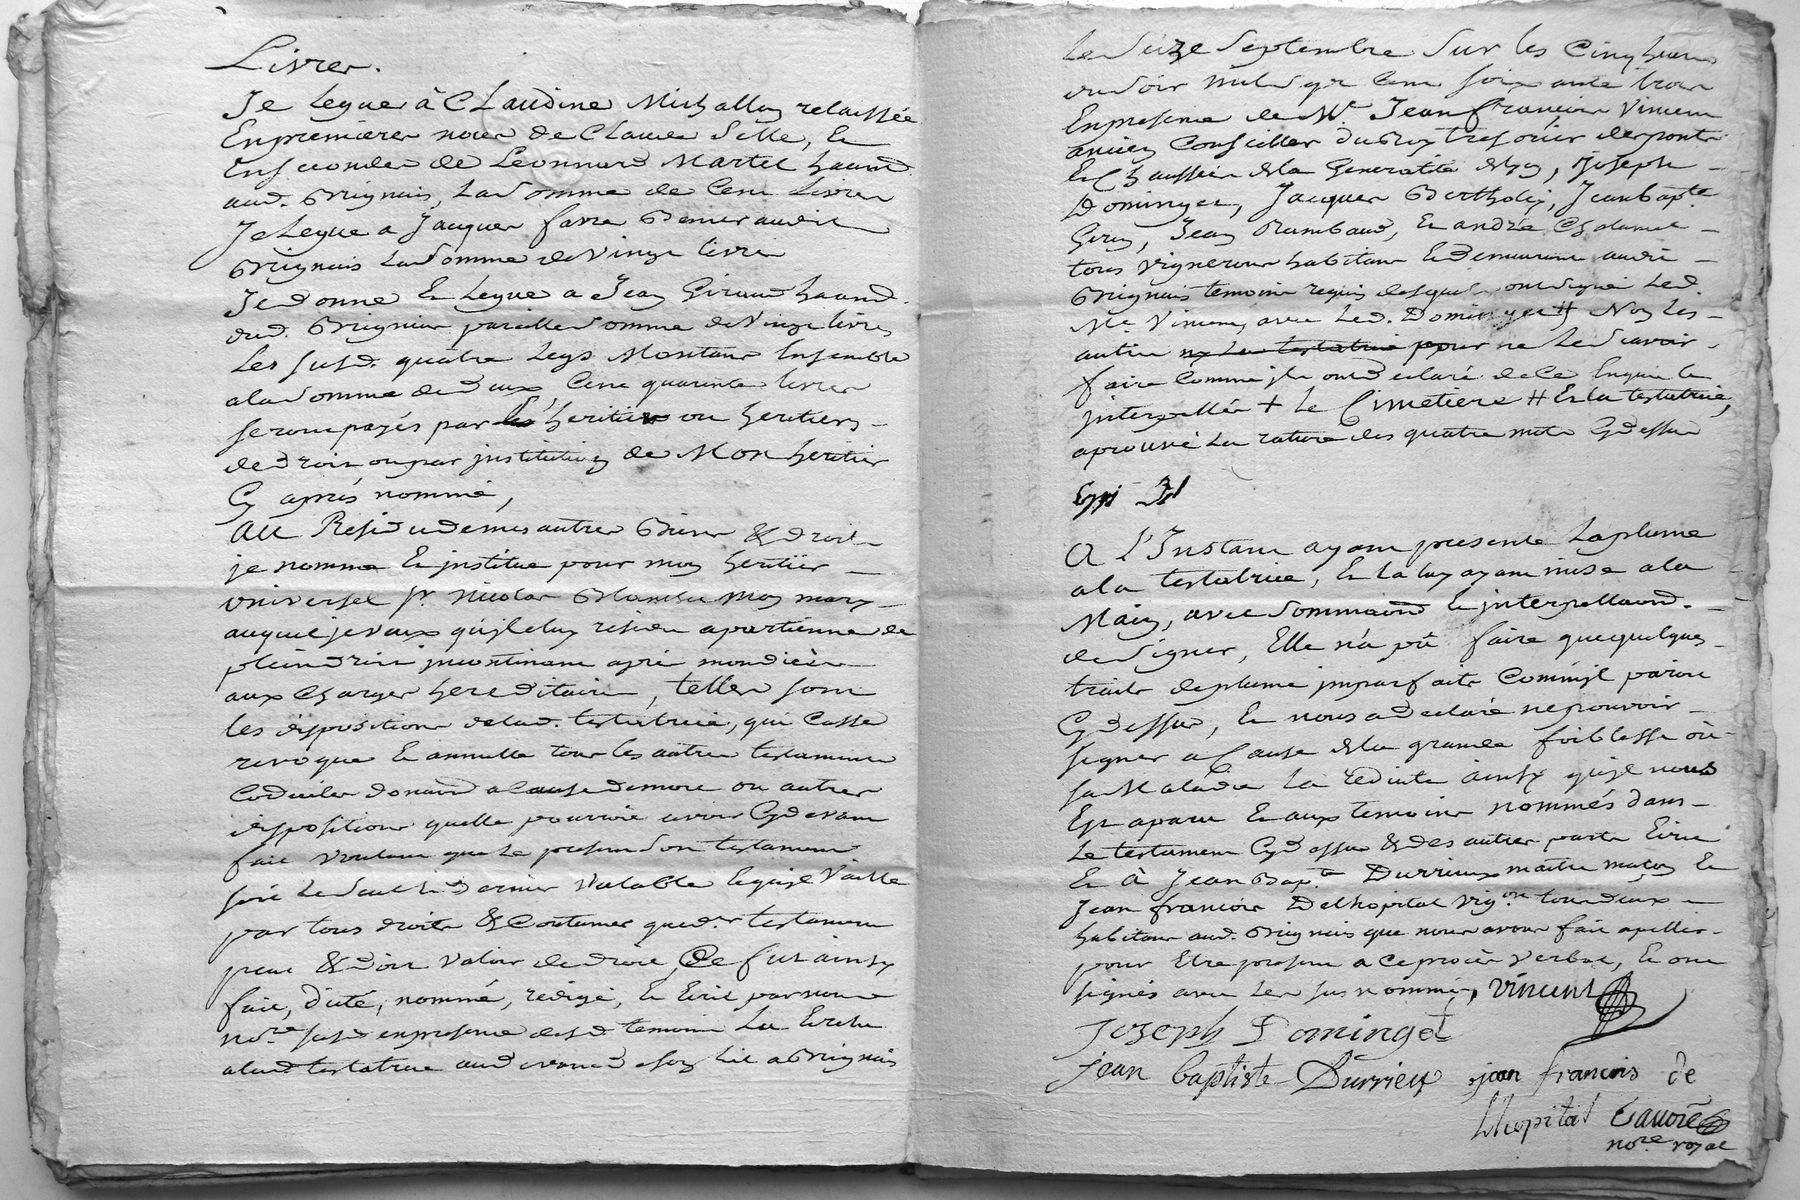 Livres.
Je Legue à Claudine Michallon relaissée
En premieres noces de Claude Sille, Et
En secondes de Léonnard Martel haband.
aud. Brignais, La Somme de Cent Livres
Je Legue a Jacques favre Demeurant
Brignais La Somme de Vingt livres
Je donne Et Legue a Jean Giraud haband.
dud. Brignais pareille Somme de Vingt livres
Les susd. quatre Legs Montant Ensemble
a la Somme de deux Cent quarente livres
seront payés par heritier ou heritiers
de droit ou par institution de Mon heritier
Cy aprés nommé,
Au Residu de mes autres Biens & droits
je nomme Et institue pour mon heritier
universel Sr. Nicolas mon mary
auquel je veux qu'jceluy residu apartienne de
plein droit jncontinant aprés mon décès
aux Charges hereditaires, telles sont
les dispositions de lad. testatrice, qui Casse
revoque Et annulle tous les autres testaments
Codiciles donation a cause de mort ou autres
dispositions quelle pourroit avoir Cydevant
fait voulant que Le present Son testament
soit Le Seul Et Dernier Valable Et quil Vaille
par tous droits & Coutumes que d.er testament
peut & doit valoir de droit, Ce fut ainsy
fait, dicté, nommé, rédigé, Et Ecrit par nous
no.re susd. en presence desd. temoins Lu Et relu
a lad. testatrice aud. devant de son Lit a Brignais
Le Seize Septembre Sur les Cinq heures
du Soir mil Sept Cent Soixante trois
En presence de Mr. Jean françois Vincent
ancien Conseiller du Roy tresorier des ponts
Et Chaussées de la Generalité de Lyon, Joseph
Dominget, Jacques Bertholey, Jean Bap.te
Giroy, Jean Rambaud, Et andré Chalamel
tous vignerons habitans Et demeurant audit
Brignais temoins requis desquels ont signé Led.
Mr. Vincent avec Led. Dominget # Non Les
autres ny La testatrice pour ne Le Scavoir
faire Comme jls ont declaré de Ce Enquis Et
jnterpellés + Le Cimetiere # Et La testatrice,
aprouvé La rature des quatre mots Cy dessus
A L'Instant ayant presenté La plume
a la testatrice, Et La luy ayant mise a la
Main, avec Sommation Et jnterpellation
de Signer, Elle n'a pû faire que quelques
traits de plume jmparfaits Comm'jl paroit
Cy dessus, Et nous a declaré ne pouvoir
signer a Cause de la grande foiblesse où
sa Maladie La reduite ainsy qu'jl nous
Est aparu Et aux temoins nommés dans
Le testament Cy dessus & des autres parts Ecrit
Et à Jean Bap.te Durrieux maitre maçon Et
Jean françois Delhopital vig.on tous deux
habitans aud. Brignais que nous avons fait apeller
pour Etre present a Ce procès Verbal, Et ont
signés avec Les sus nommés, Vincent
Jozeph Dominget
jean baptiste Durrieu jean francois de
Lhopital Tavoré
no.re royal